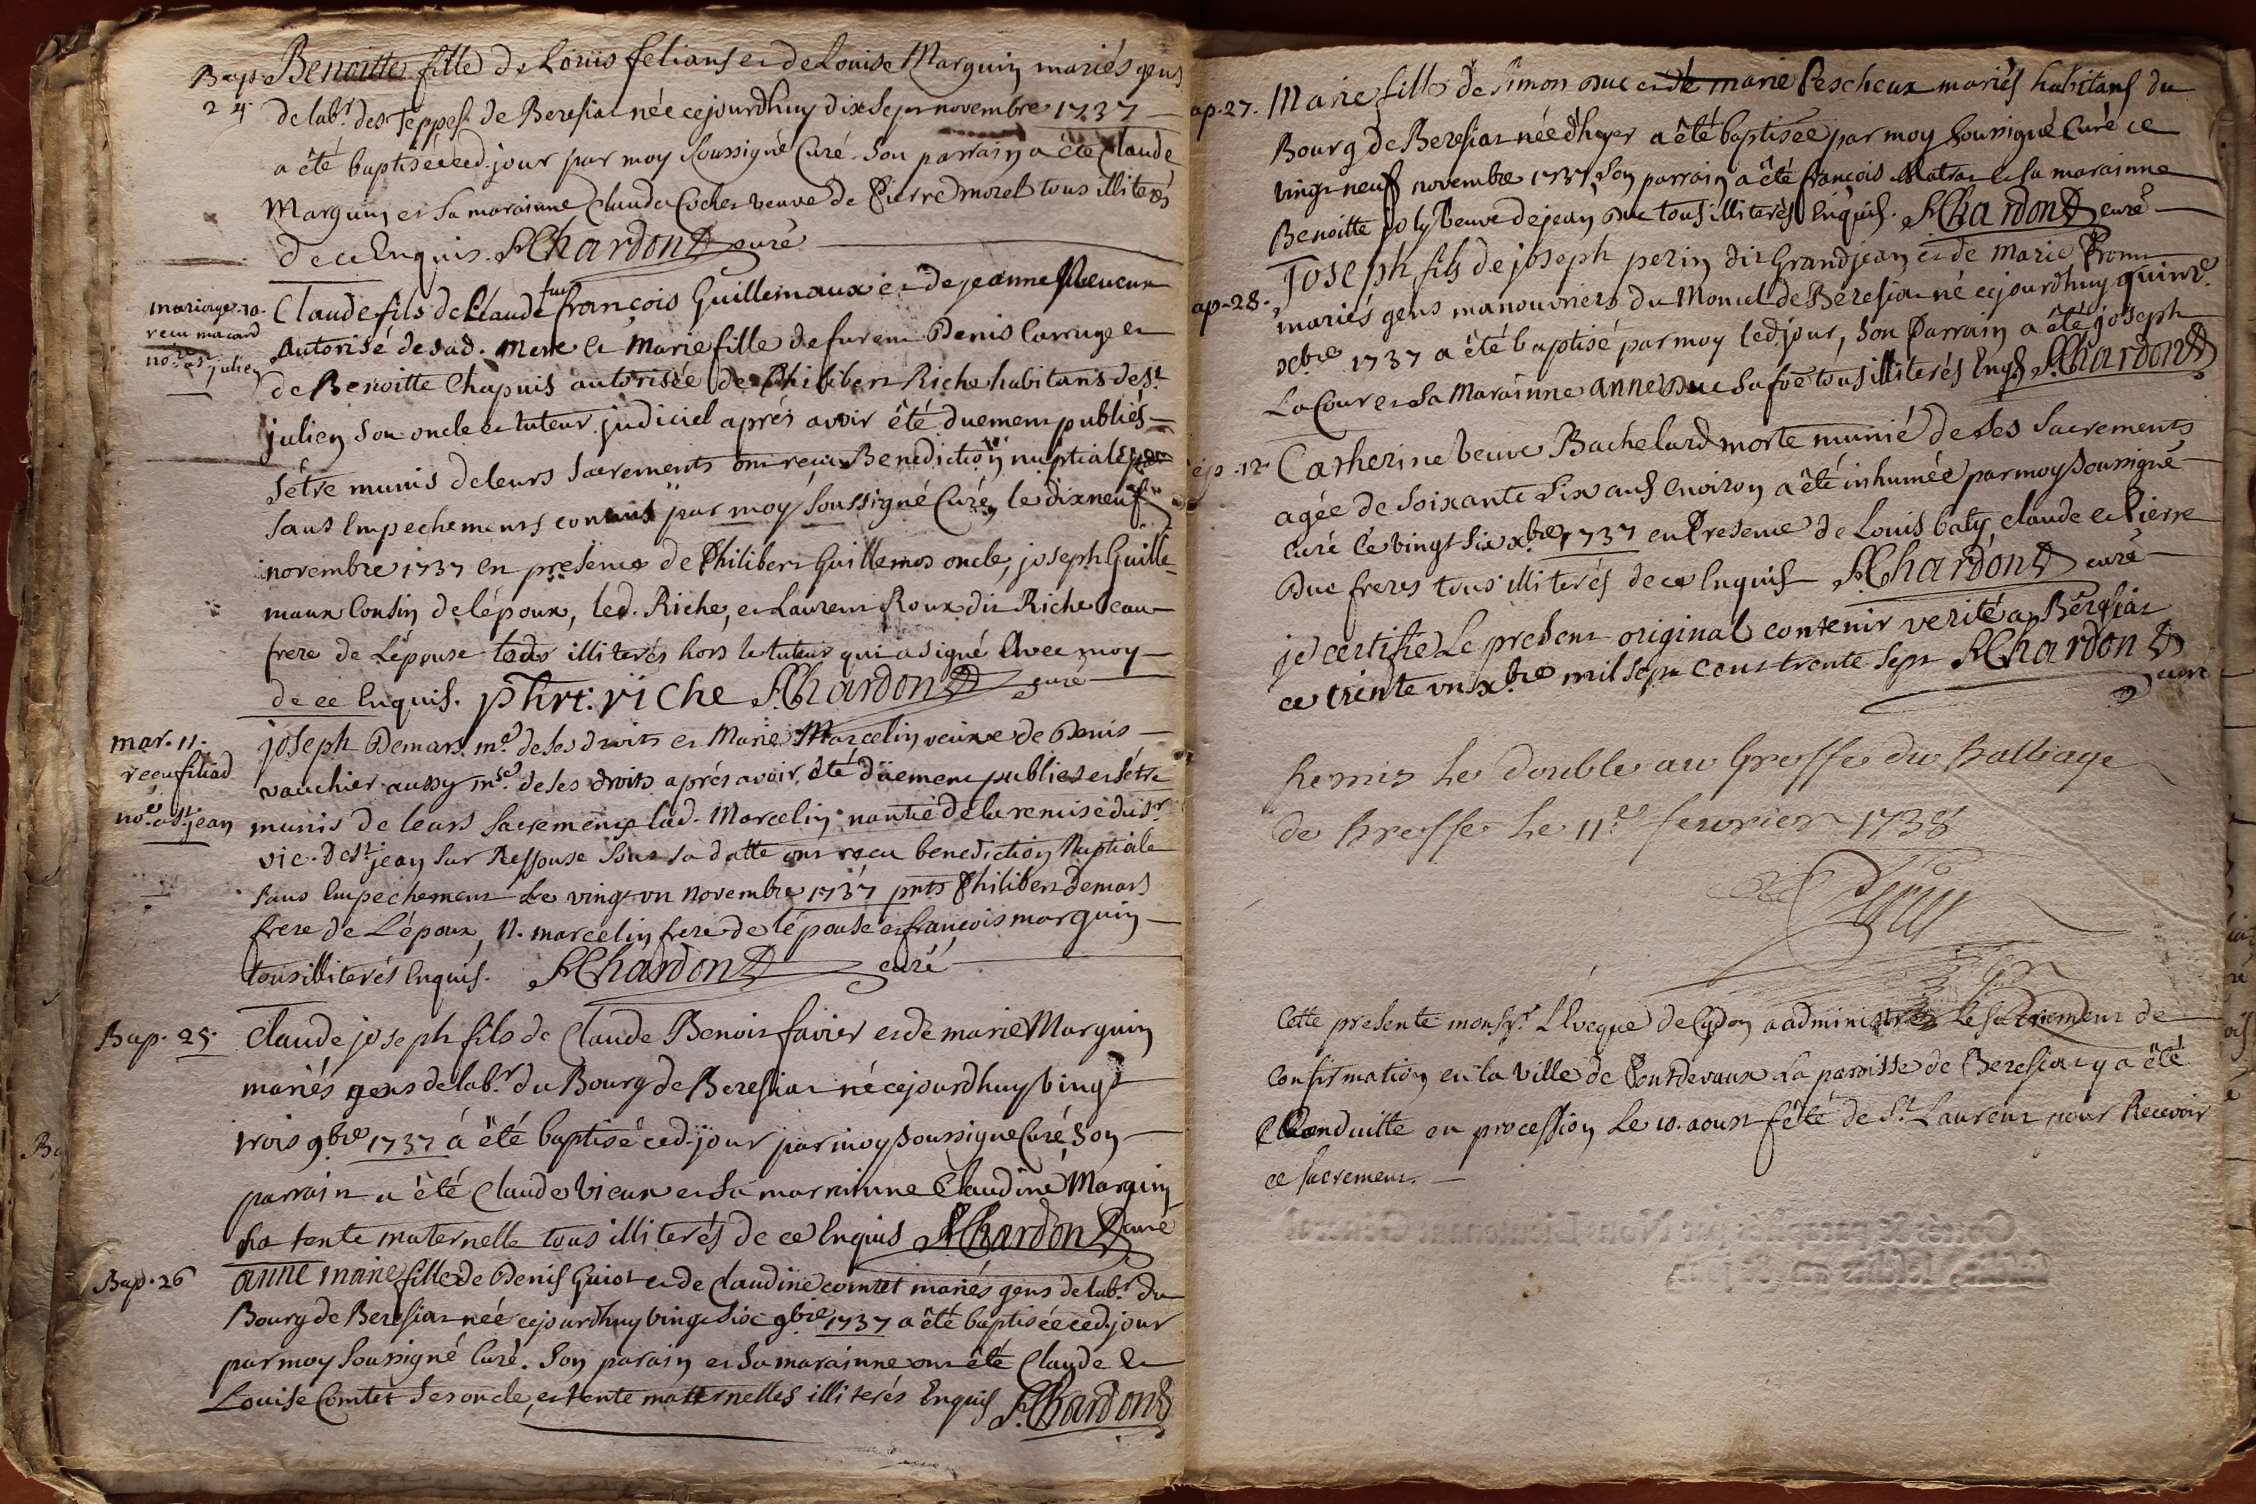 Bap. 24. Benoitte fille de Loüis felians et de Louise Marguin mariés gens
de labr. des Teppes de Beresiat née cejourdhuy dix sept novembre 1737
a été baptisée ced. jour par moy soussigné Curé. Son parrain a été Claude
Marguin et sa marainne Clauda Cochet veuve de Pierre morel tous illiterés
de ce Enquis. Chardon curé
mariage. 10.
recu macard
nore. a st. julien
Claude fils de Claude françois Guillemaux et de jeanne
Autorisé de sad. mere et Marie fille de furent Denis Carruge et
de Benoitte Chapuis autorisée de Philibert Riche habitans de st.
julien son oncle et tuteur judiciel aprés avoir été duement publiés
sétre munis de leurs sacrements ont reçu Benediction nuptiale
sans Empechements connus par moy soussigné Curé, le dixneuf
novembre 1737 en presence de Philibert Guillemos oncle, joseph Guille-
maux Cousin de lépoux, led. Riche, et Laurent Roux dit Riche beau
frere de Lépouse tous illiterés hors le tuteur qui a signé avec moy
de ce Enquis. phrt: riche Chardon curé
mar. 11.
recu filiad
nore. a st. jean
joseph Demars me. de ses droits et Marie Marcelin veuve de Denis
vauchier aussy mse. de ses droits aprés avoir été düement publies et sétre
munis de leurs sacrements lad. Marcelin nantie de la remise du sr.
vic. de st. jean sur Ressouse sous sa datte ont reçu benediction Nuptiale
sans Empechement Le vingt vn novembre 1737 pnts Philibert Demars
frere de L'époux, N. marcelin frere de l'épouse et françois marguin
tous illiterés Enquis. Chardon curé
Bap. 25. Claude joseph fils de Claude Benoit favier et de marie Marguin
mariés gens de labr. du Bourg de Beresiat né cejourdhuy vingt
trois 9bre 1737 a été baptisé ced. jour par moy soussigné Curé son
parrain a été Claude Vieux et sa marrainne Claudine Marguin
sa tente maternelle tous illiterés de ce Enquis Chardon curé
Bap. 26 anne marie fille de Denis Guiot et de Claudine comtet mariés gens de labr. du
Bourg de Beresiat née cejourdhuy vingt six 9bre 1737 a été baptisée ced. jour
par moy soussigné Curé. Son parain et sa marainne ont été Claude et
Louise Comtet ses oncle, et tente maternelles illiterés Enquis Chardon
ap. 27. Marie fille de simon Duc et de marie Pescheux mariés habitans du
Bourg de Beresiat née d'hyer a été baptisée par moy soussigné Curé ce
vingt neuf novembre 1737 son parrain a été françois Matrat et sa marainne
Benoitte joly veuve de jean Duc tous illiterés Enquis. Chardon curé
ap. 28. Joseph fils de joseph perin dit Grandjean et de Marie
mariés gens manouvriers du Moncel de Beresiat né cejourdhuy quinze
xcbre 1737 a été baptisé par moy led. jour, son Parrain a été joseph
La Cour et sa Marainne anne Duc sa fme tous illiterés Enqs Chardon
ep. 12. Catherine veuve Bachelard morte munié de ses sacrements
agée de soixante six ans Environ a été inhumée par moy soussigné
Curé Ce vingt six xbre 1737 en Presence de Louis baty, claude et Pierre
Duc freres tous illiterés de ce Enquis Chardon curé
je certifie Le present original contenir verité a Beresiat
ce trente vn xbre mil sept cens trente sept Chardon
curé
Remis Le double au Greffe du Balliage
de bresse Le 11e. fevrier 1738
Cette presente monsgr. L'Eveque de Cydon a administré Le sacrement de
Confirmation en la ville de Pontdevaux La paroisse de Beresiat y a été
Conduitte en procession Le 10. aoust fêté de St. Laurent pour Recevoir
ce sacrement.